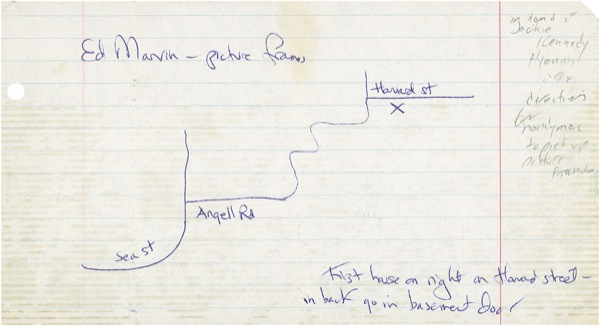 Ed Marvin - picture frames
in hand of
Jackie
Kennedy
Hyannis
directions
for
handyman
to pick up
picture
frames
Harvard st
X
Angell Rd
Sea st
First house on right on Harvard street -
in back go in basement door